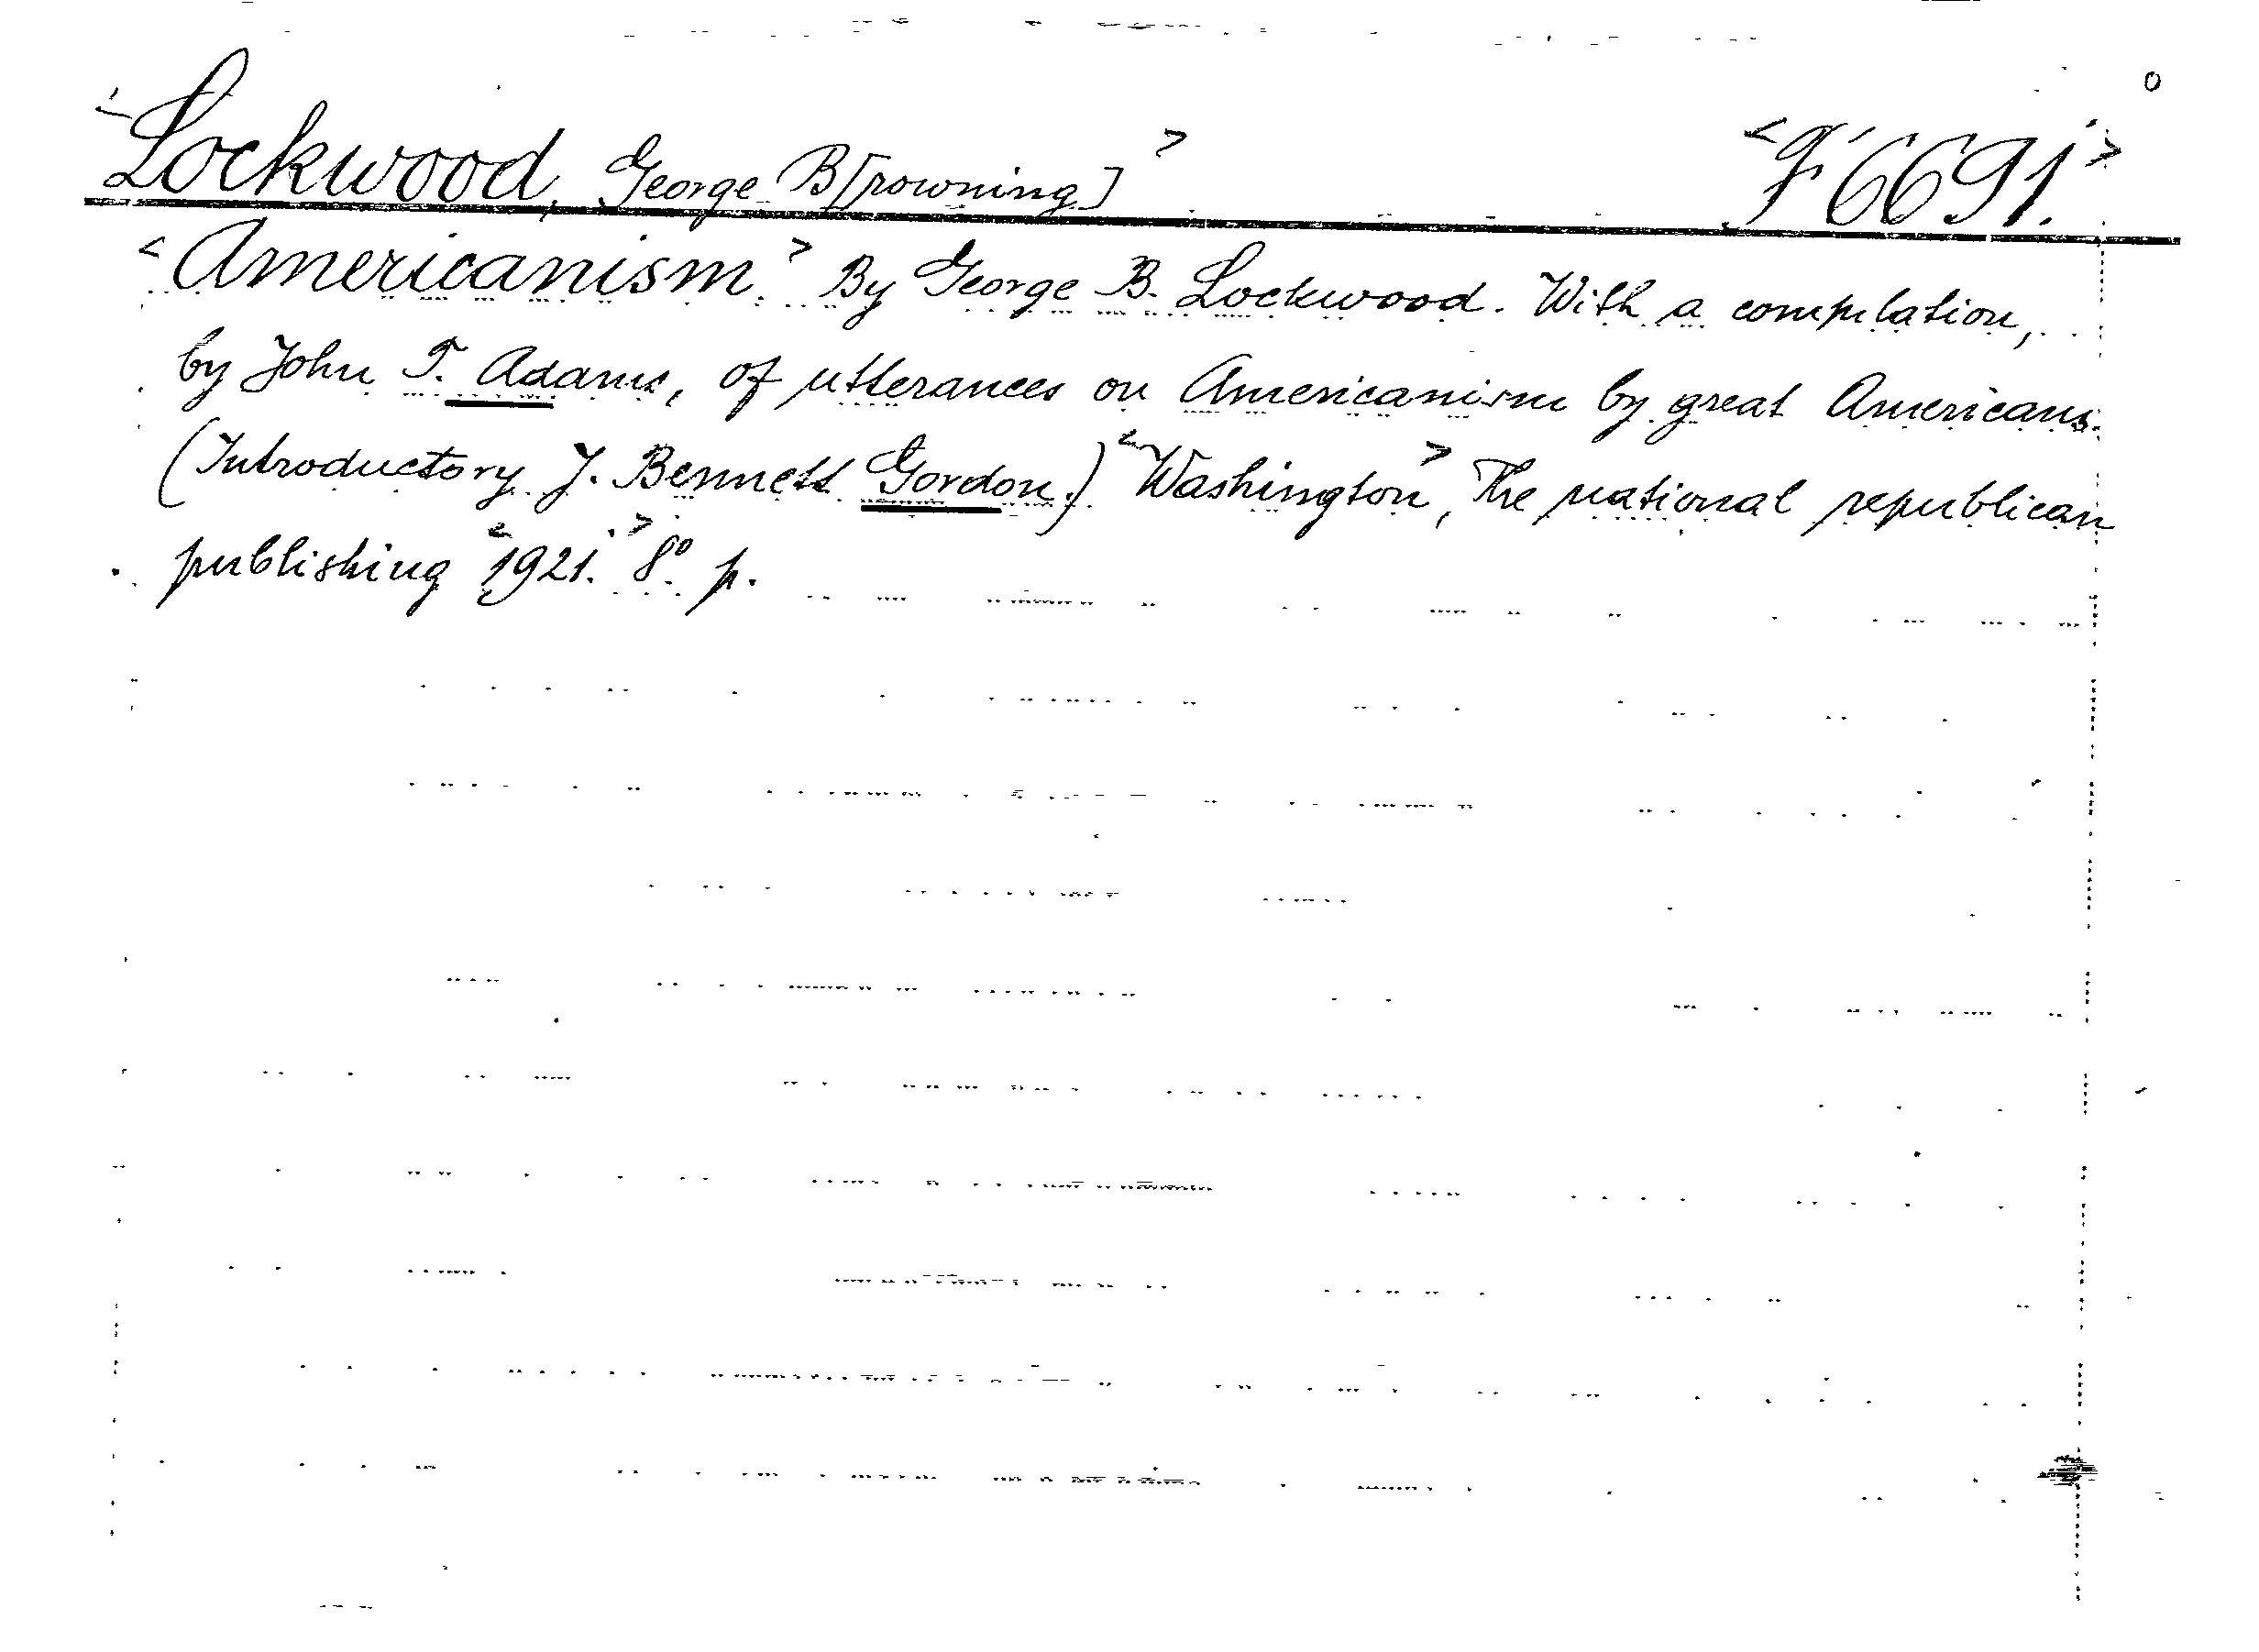 <Lockwood, George B[rowning]> <F 6691.>
<Americanism.> By George B. Lockwood. With a compilation,
by John T. Adams, of utterances on Americanism by great Americans.
(Introductory J. Bennett Gordon.) <Washington>, The national republican
publishing <1921.> 8° p.